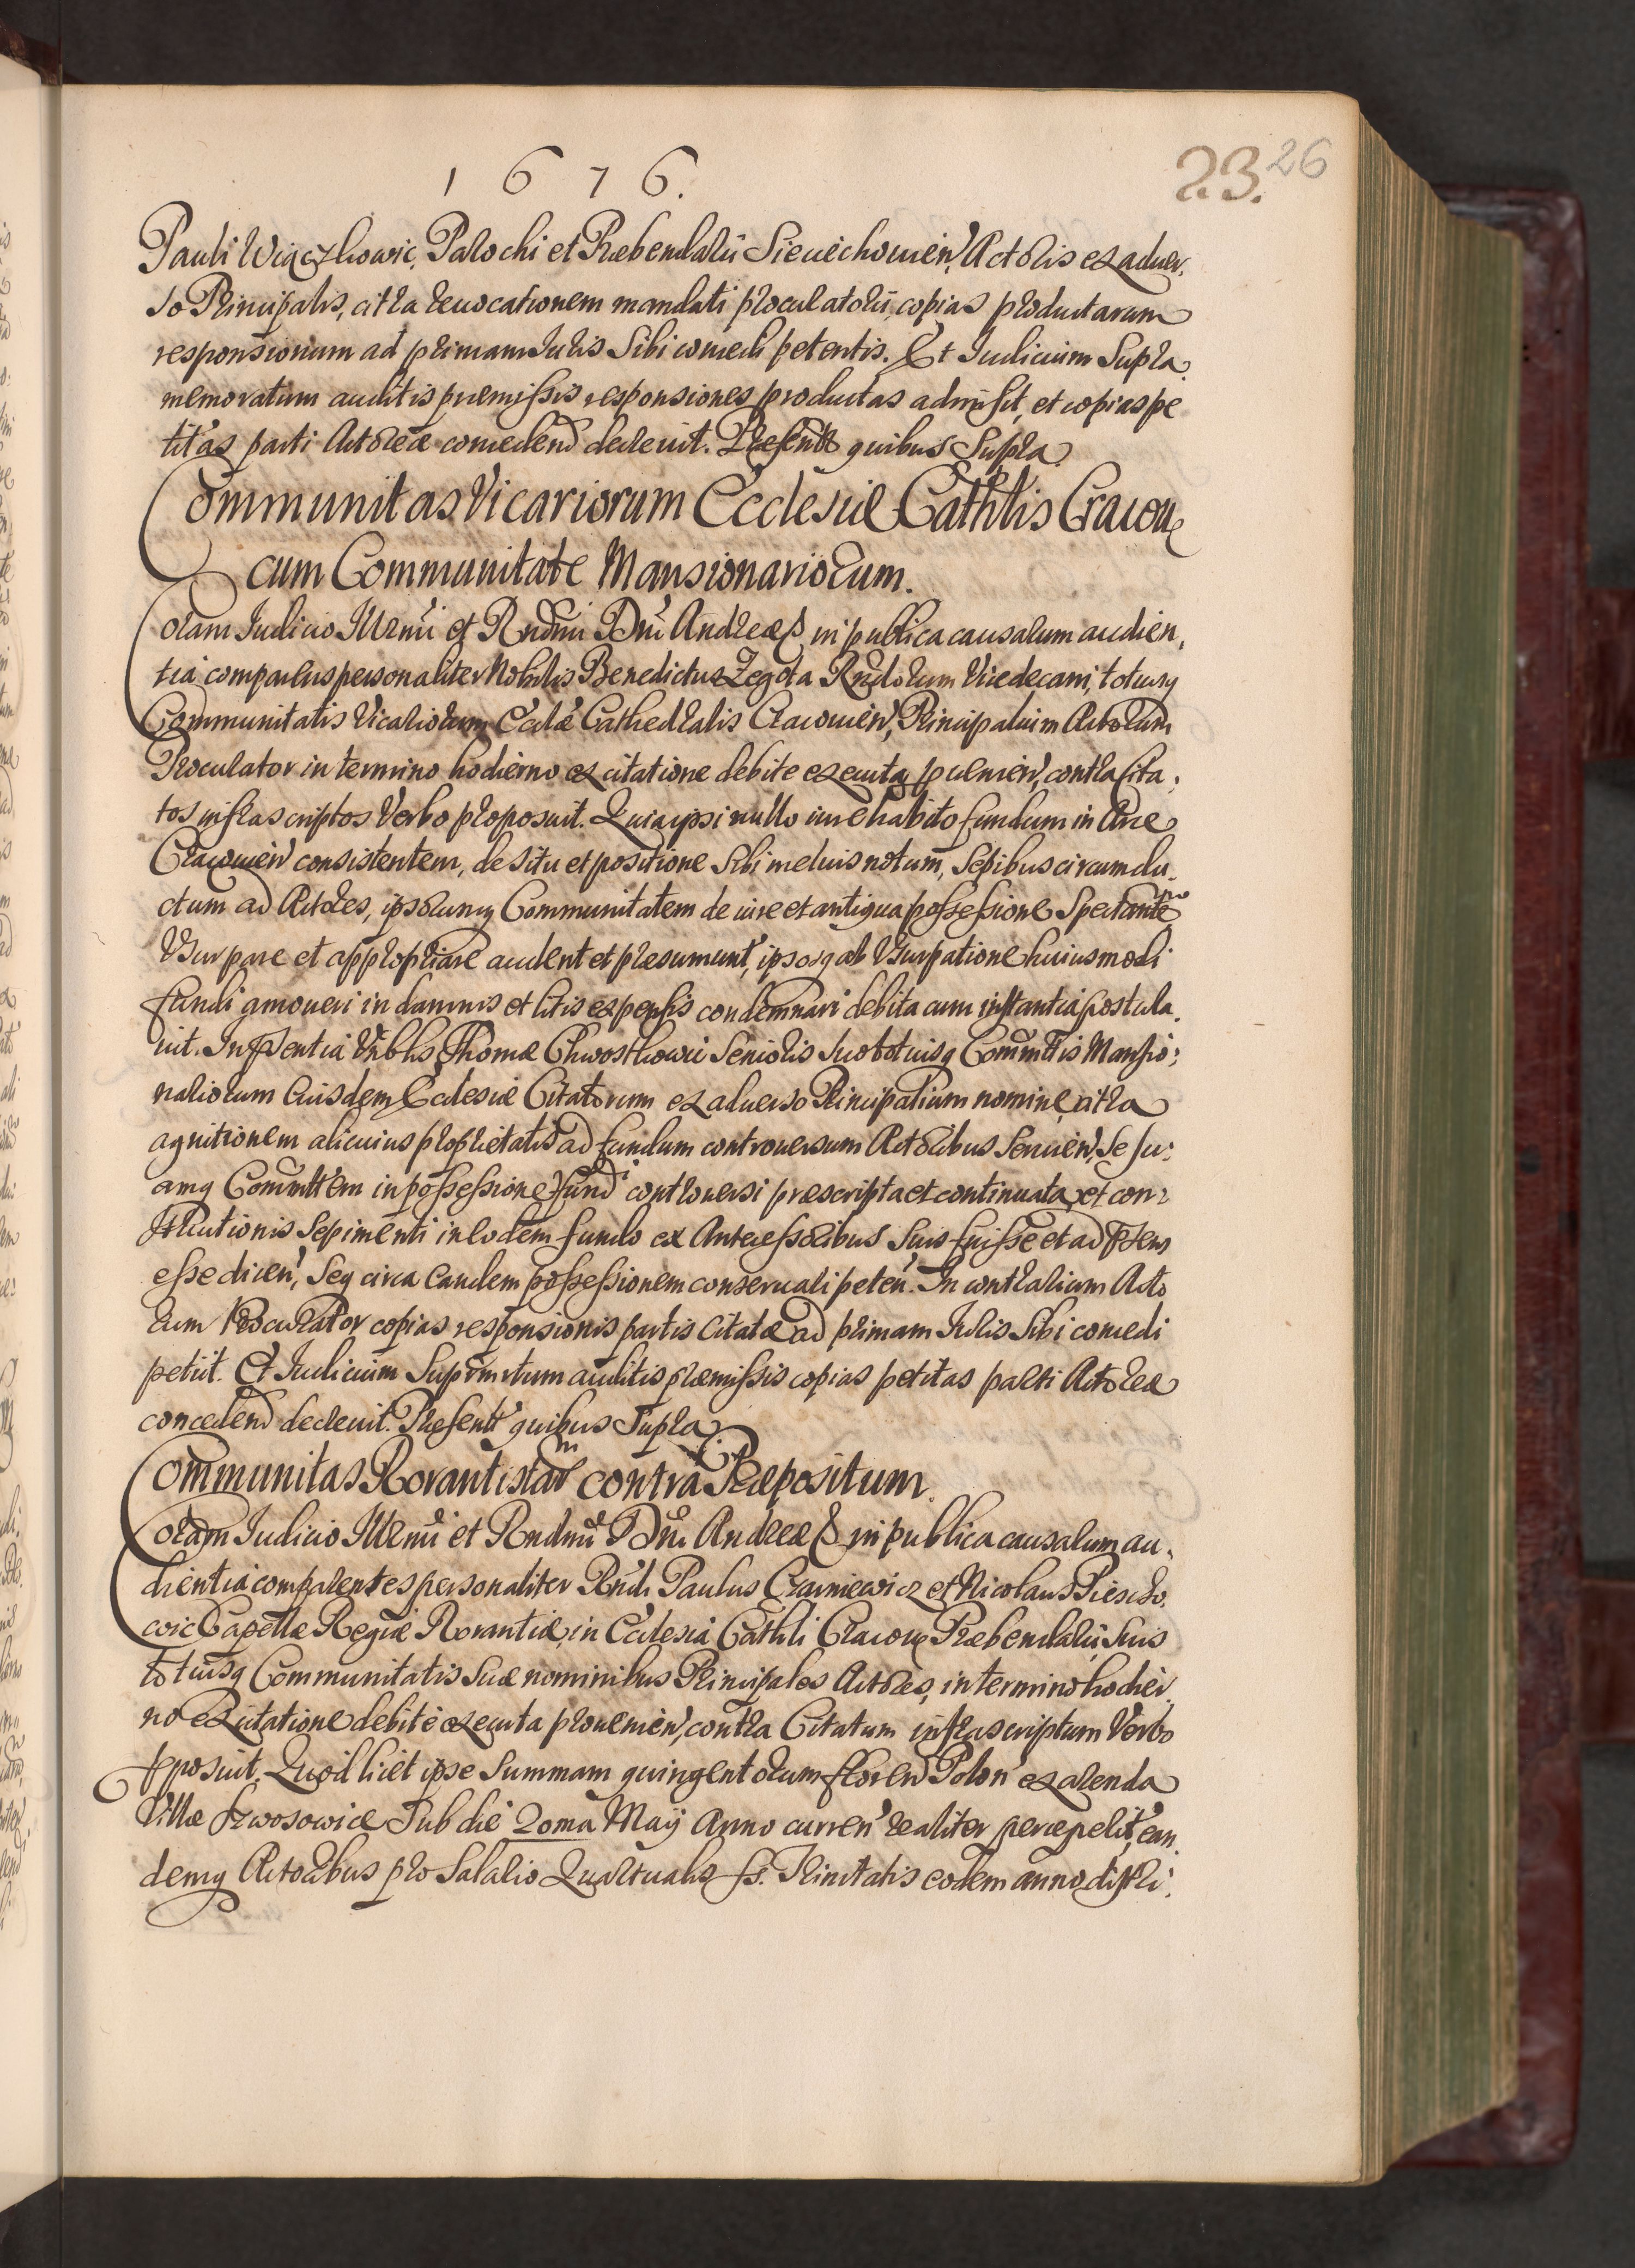 1676.
23. 26
Pauli Wiączkowic, Parochi et Præbendarii Sieciechowień, Actoris ex aduer,
so Principalis, citra reuocationem mandati procuratorii, copias productarum
responsionum ad primam Iuris Sibi concedi petentis. Et Iudicium Supra
memoratum auditis præmissis responsiones productas admisit, et copias pe
titas parti Actoreæ concedend decreuit. Præsentt quibus Supra.
Communitas Vicariorum Ecclesiæ Cathlis Cracou
cum Communitate Mansionariorum.
Coram Iudicio Illrmi et Rndmi Dni Andreæ in publica causarum audien,
tia comparens personaliter Nobilis Benedictus Zegota Rndorum Vicedecani, totiusq
Communitatis Vicariorum Eccłæ Cathedralis Cracouień, Principalium Actorum
Procurator in termino hodierno ex citatione debite executa prueniéń, contra Cita,
tos infrascriptos Verbo proposuit. Quia ipsi nullo iure habito fundum in Arce
Cracouień consistentem, de situ et positione Sibi melius notum, Sepibus circumdu,
ctum ad Actores, ipsorumq Communitatem de iure et antiqua possessione Spectantem
Vsurpare et appropriare audent et præsumunt, ipsosq ab Vsurpatione huiusmodi
fundi amoueri in damnis et litis expensis condemnari debita cum instantia postula,
uit. In psentia Vnblis Thomæ Chwostkowic Senioris suo totiusq Commttis Mansio,
nariorum eiusdem Ecclesiæ Citatorum ex aduerso Principalium nomine, citra
agnitionem alicuius proprietatis ad fundum controuersum Actoribus Seruień, Se Su,
amq Commttem in possessione fundi controuersi præscripta et continuata, et con,
structionis Sepimenti in eodem fundo ex Antecessoribus Suis fuisse et ad psens
esse dicen, Seq circa eandem possessionem conseruari peten. In contrarium Acto
rum Procurator copias responsionis partis Citatæ ad primam Iuris Sibi concedi
petiit. Et Iudicium Suprmrtum auditis præmissis copias petitas parti Actoreæ
concedend decreuit. Præsentt quibus Supra.
Communitas Rorantistarm contra Præpositum.
Coram Iudicio Illrmi et Rndmi Dni Andreæ in publica causarum au,
dientia comparentes personaliter Rndi Paulus Czarniewicz et Nicolaus Piesczo,
wic Capellæ Regiæ Rorantiæ, in Ecclesia Cathli Cracou Præbendarii, Suis
totiusq Communitatis Suæ nominibus Principales Actores, in termino hodier,
no ex citatione debite executa prouenień, contra Citatum infrascriptum Verbo
pposuit. Quod licet ipse Summam quingentorum floren Polon ex arenda
Villæ Szwosowicæ Sub die 20ma Maÿ Anno curren realiter perceperit, ean,
demq Actoribus pro Salario Quartualis Ss. Trinitatis eodem anno distri,